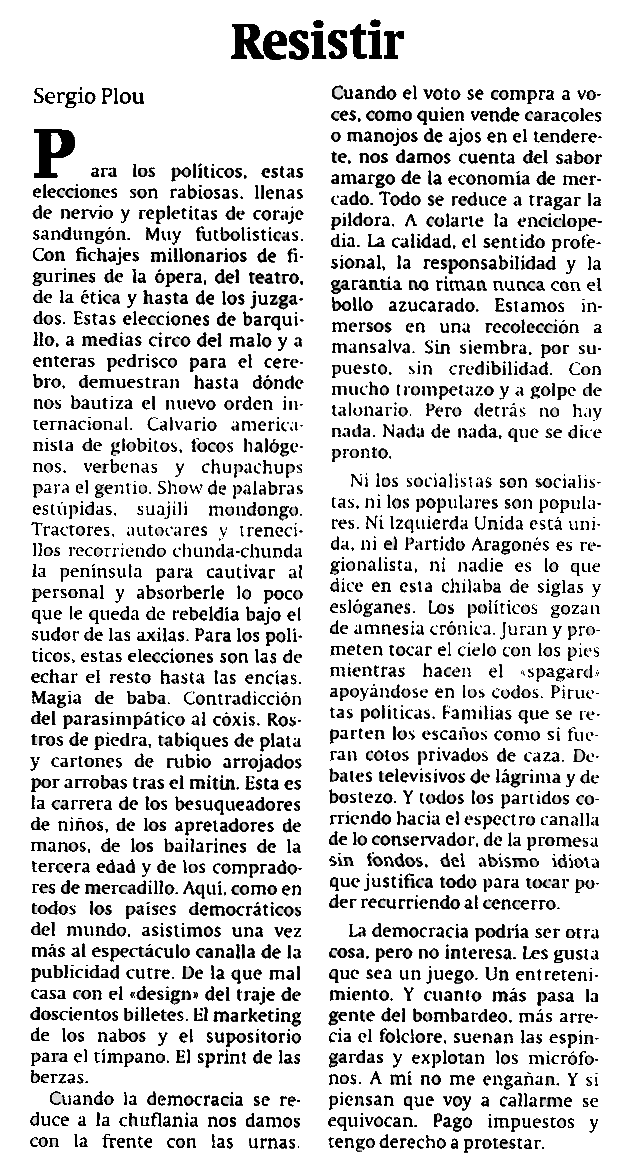 Resistir
Sergio Plou
Para los políticos, estas
elecciones son rabiosas, llenas
de nervio y repletitas de coraje
sandungón. Muy futbolísticas.
Con fichajes millonarios de fi-
gurines de la ópera, del teatro,
de la ética y hasta de los juzga-
dos. Estas elecciones de barqui-
llo, a medias circo del malo y a
enteras pedrisco para el cere-
bro, demuestran hasta dónde
nos bautiza el nuevo orden in-
ternacional. Calvario america-
nista de globitos, focos halóge-
nos, verbenas y chupachups
para el gentío. Show de palabras
estúpidas, suajili mondongo.
Tractores, autocares y treneci-
llos recorriendo chunda-chunda
la península para cautivar al
personal y absorberle lo poco
que le queda de rebeldía bajo el
sudor de las axilas. Para los polí-
ticos, estas elecciones son las de
echar el resto hasta las encías.
Magia de baba. Contradicción
del parasimpático al cóxis. Ros-
tros de piedra, tabiques de plata
y cartones de rubio arrojados
por arrobas tras el mitin. Esta es
la carrera de los besuqueadores
de niños, de los apretadores de
manos, de los bailarines de la
tercera edad y de los comprado-
res de mercadillo. Aquí, como en
todos los países democráticos
del mundo, asistimos una vez
más al espectáculo canalla de la
publicidad cutre. De la que mal
casa con el «design» del traje de
doscientos billetes. El marketing
de los nabos y el supositorio
para el tímpano. El sprint de las
berzas.
Cuando la democracia se re-
duce a la chuflania nos damos
con la frente con las urnas.
Cuando el voto se compra a vo-
ces, como quien vende caracoles
o manojos de ajos en el tendere-
te, nos damos cuenta del sabor
amargo de la economía de mer-
cado. Todo se reduce a tragar la
píldora. A colarte la enciclope-
dia. La calidad, el sentido profe-
sional, la responsabilidad y la
garantía no riman nunca con el
bollo azucarado. Estamos in-
mersos en una recolección a
mansalva. Sin siembra, por su-
puesto, sin credibilidad. Con
mucho trompetazo y a golpe de
talonario. Pero detrás no hay
nada. Nada de nada, que se dice
pronto.
Ni los socialistas son socialis-
tas, ni los populares son popula-
res. Ni Izquierda Unida está uni-
da, ni el Partido Aragonés es re-
gionalista, ni nadie es lo que
dice en esta chilaba de siglas y
eslóganes. Los políticos gozan
de amnesia crónica. Juran y pro-
meten tocar el cielo con los pies
mientras hacen el «spagard»
apoyándose en los codos. Pirue-
tas políticas. Familias que se re-
parten los escaños como si fue-
ran cotos privados de caza. De-
bates televisivos de lágrima y de
bostezo. Y todos los partidos co-
rriendo hacia el espectro canalla
de lo conservador, de la promesa
sin fondos, del abismo idiota
que justifica todo para tocar po-
der recurriendo al cencerro.
La democracia podría ser otra
cosa, pero no interesa. Les gusta
que sea un juego. Un entreteni-
miento. Y cuanto más pasa la
gente del bombardeo, más arre-
cia el folclore, suenan las espin-
gardas y explotan los micrófo-
nos. A mí no me engañan. Y si
piensan que voy a callarme se
equivocan. Pago impuestos y
tengo derecho a protestar.